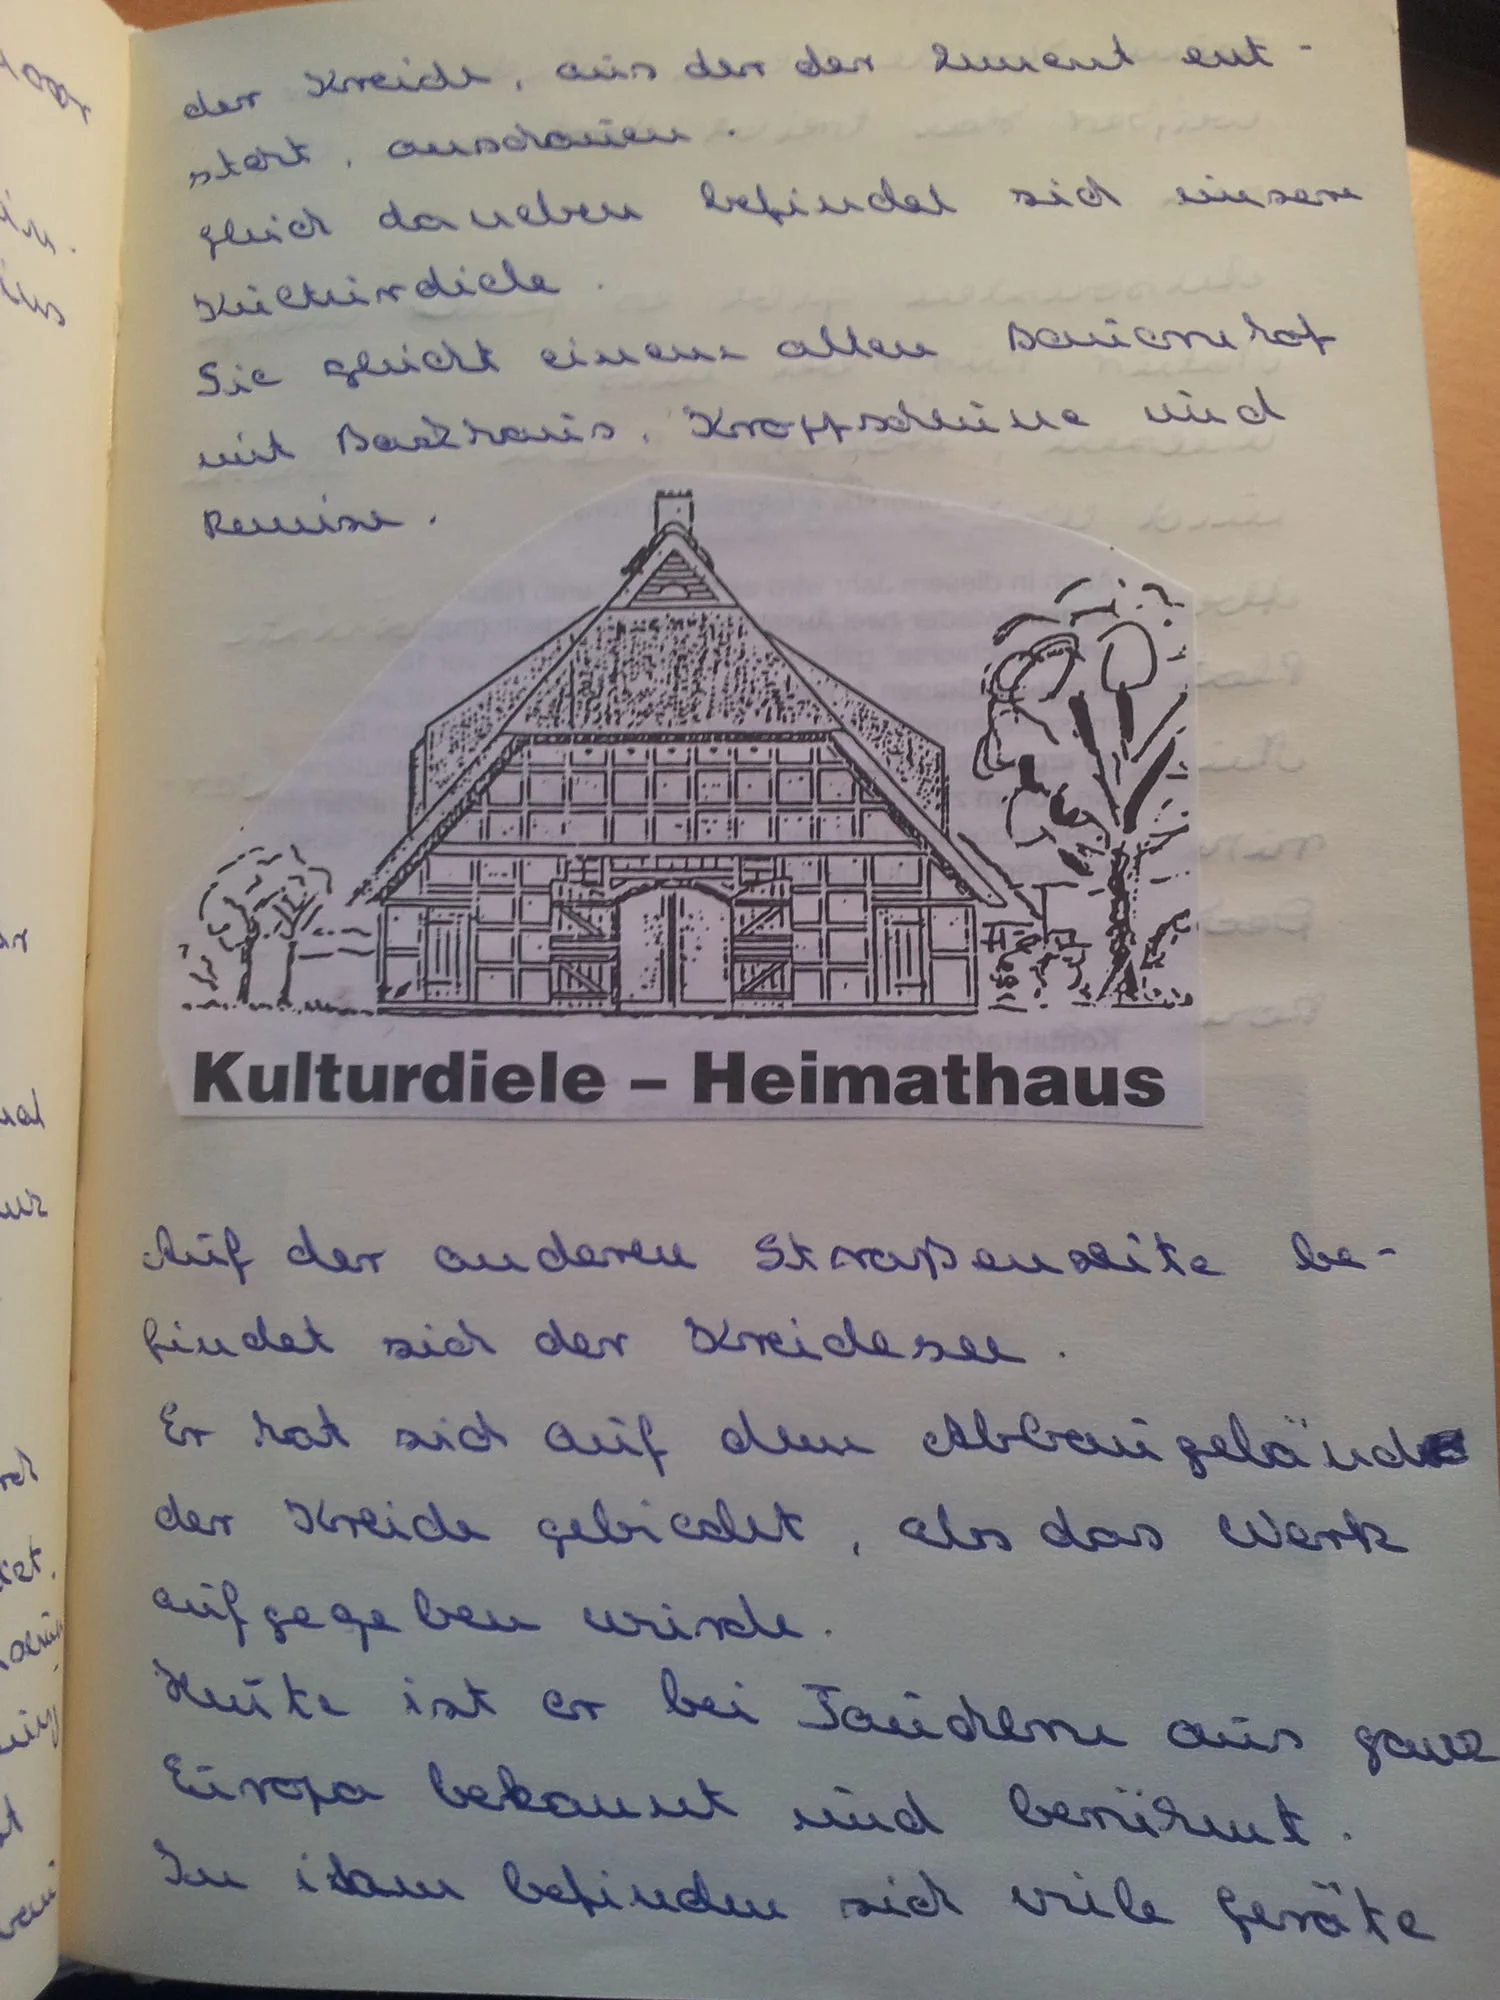 der Kreide, aus der der Zement ent-
steht, anschauen.
gleich daneben befindet sich unsere
Kulturdiele.
Sie gleicht einem alten Bauernhof
mit Backhaus, Kroppscheune und
Remise.
Kulturdiele – Heimathaus
Auf der anderen Straßenseite be-
findet sich der Kreidesee.
Er hat sich auf dem Abbaugelände
der Kreide gebildet, als das Werk
aufgegeben wurde.
Heute ist er bei Tauchern aus ganz
Europa bekannt und berühmt.
In ihm befinden sich viele Geräte